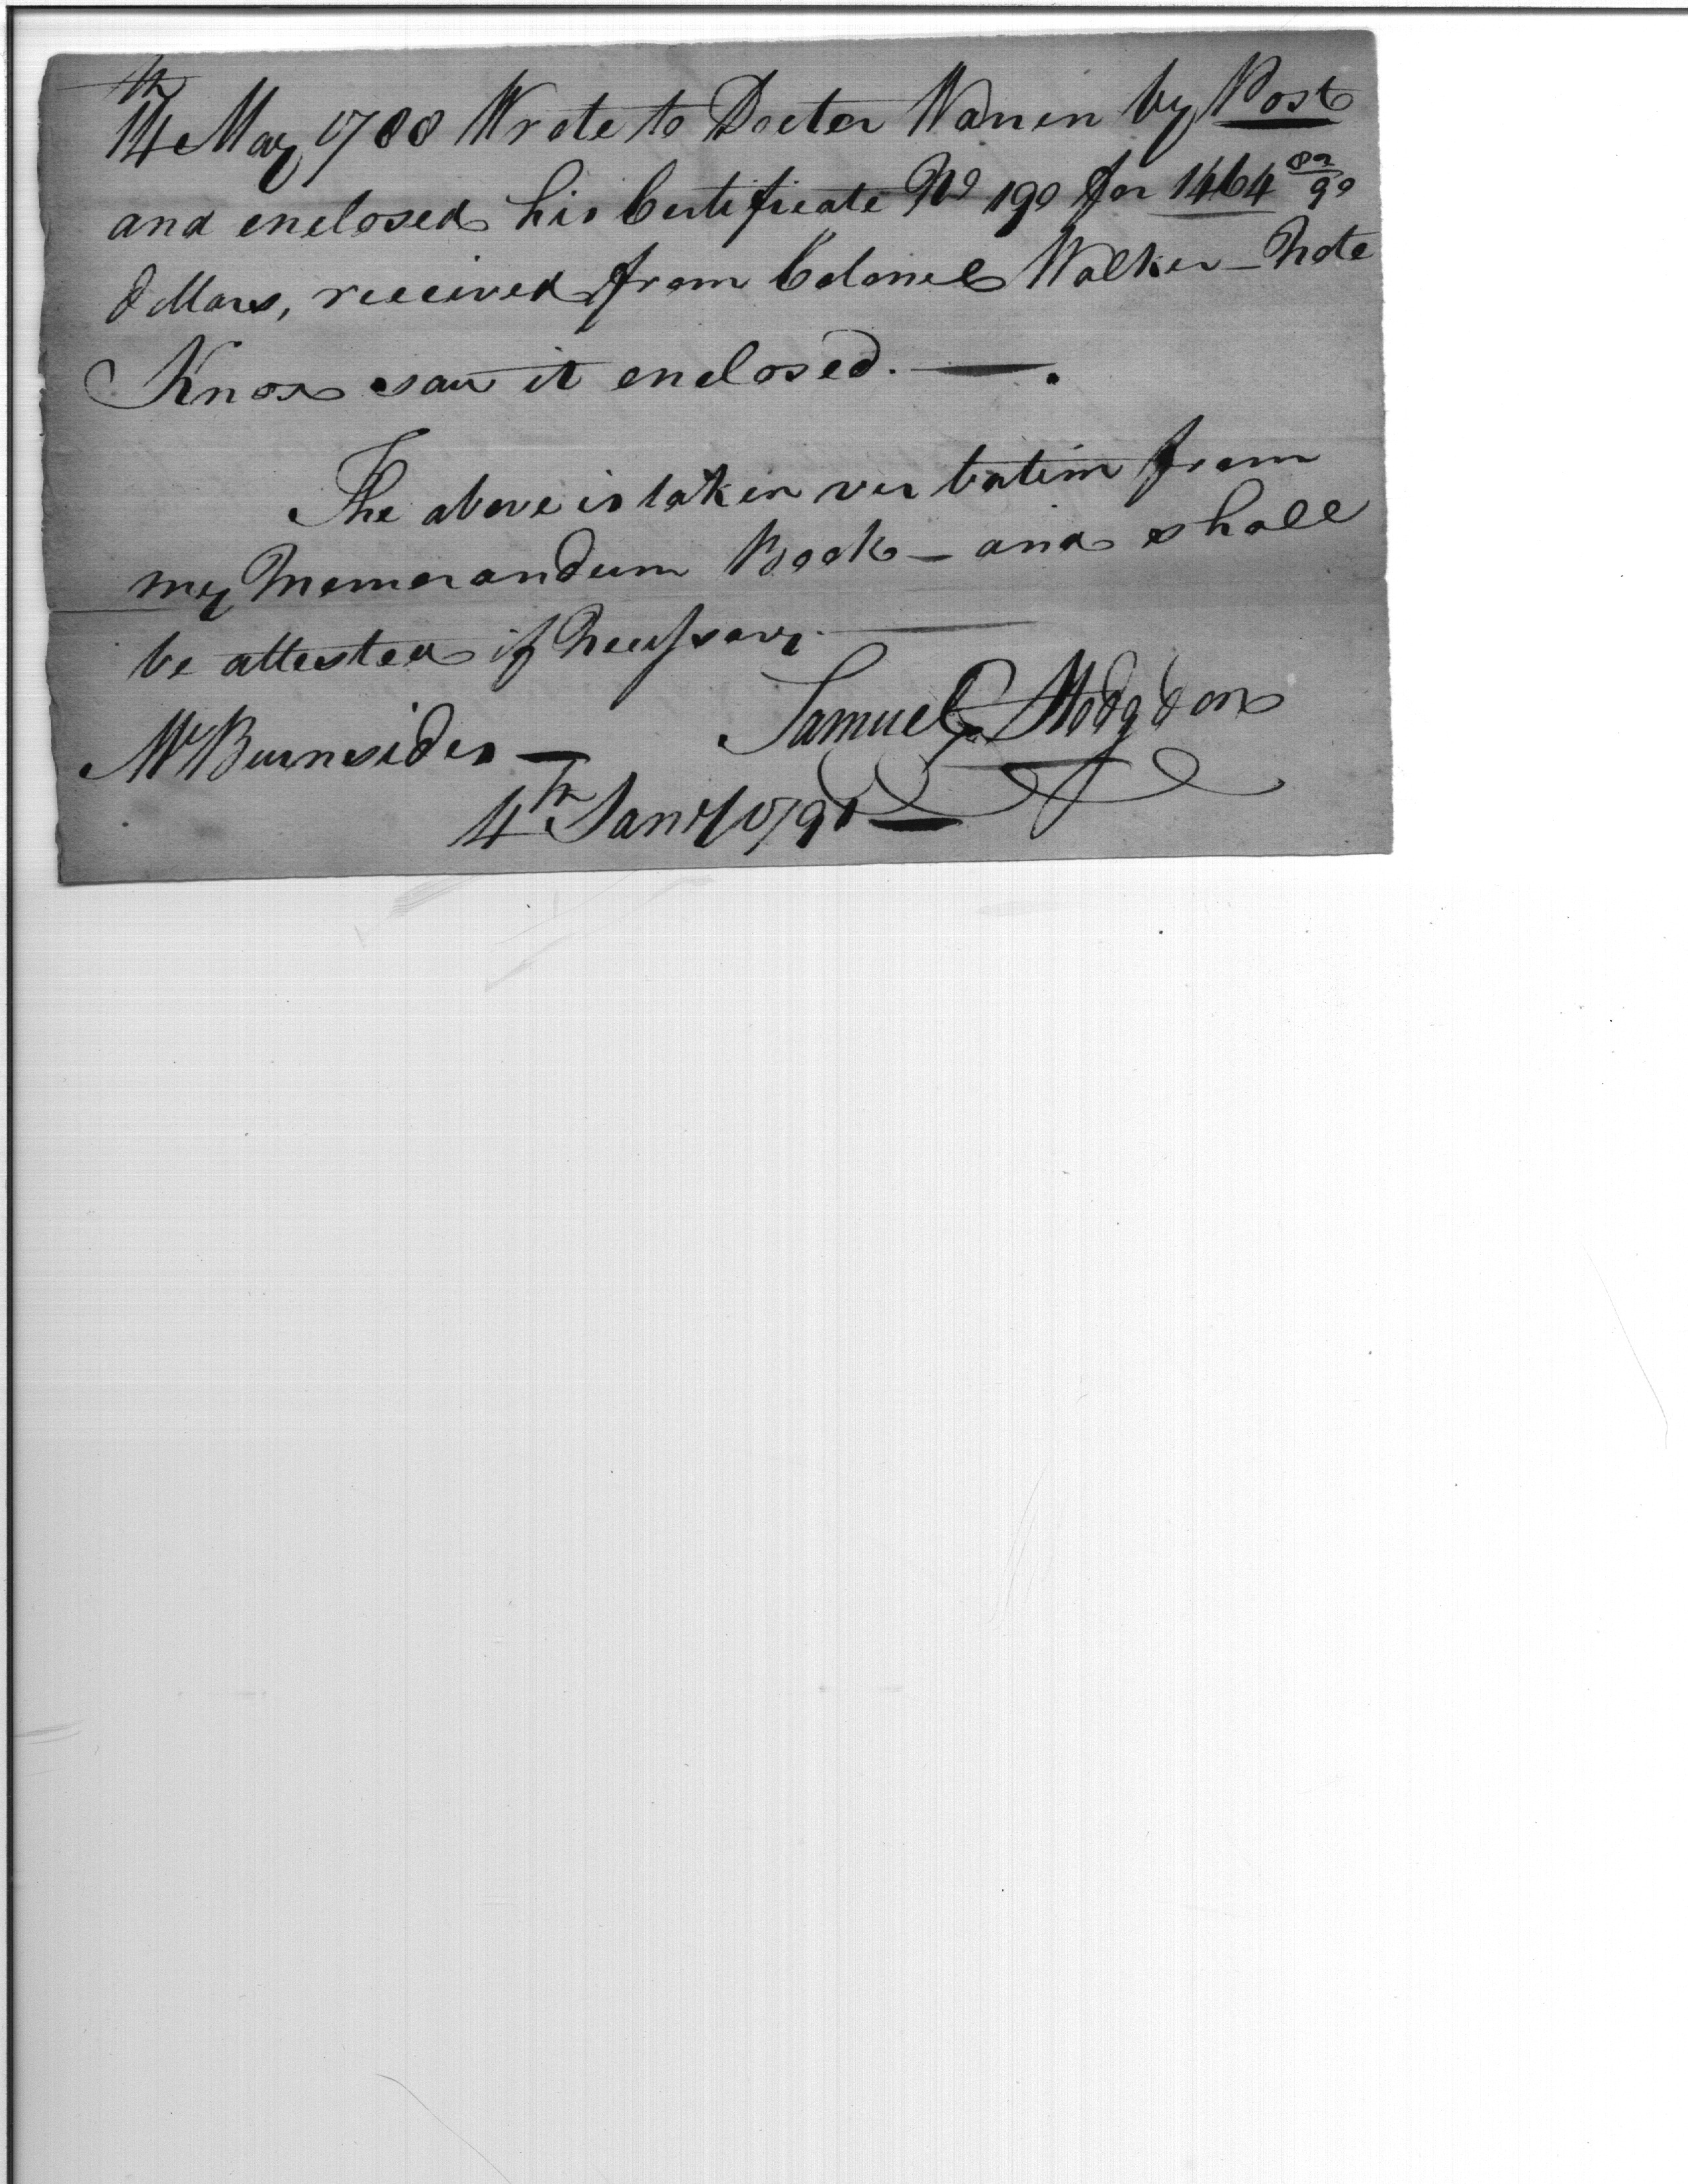 14th May 1788 Wrote to Docter Warren by Post
and enclosed his Certificate No 190 for 1464 82/90
dollars, received from Colonel Walker – Note
Knox saw it enclosed. —.
The above is taken verbatim from
my Memorandum Book – and shall
be attested if Necessary. —
Samuel Hodgdon
Mr Burnsides —
4th Jany 1791 —